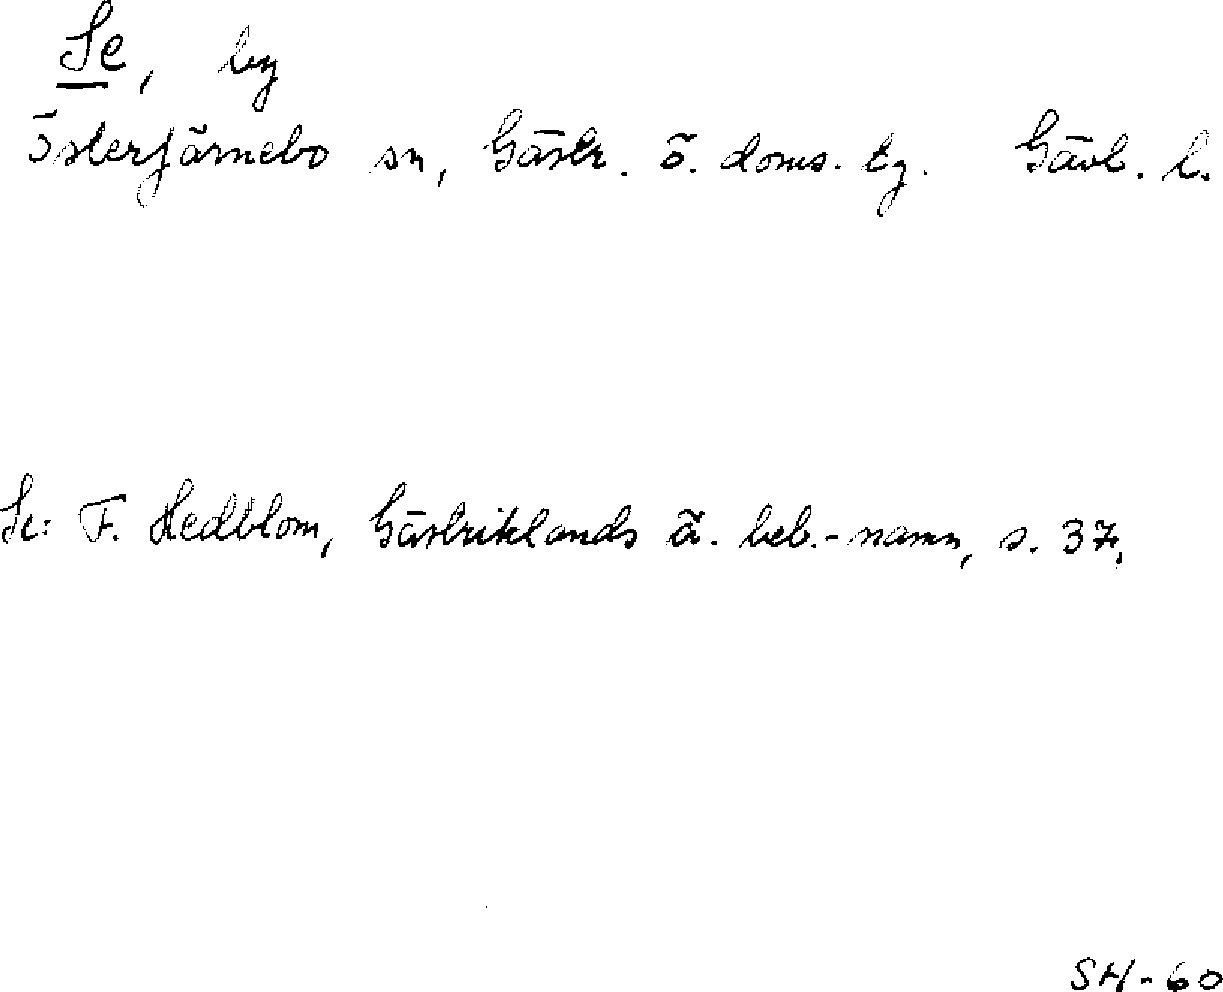 Se, by
Österfärnebo sn, Gästr. ö. doms. tg. Gävl. l.
Se: F. Hedblom, Gästriklands ä. beb.-namn, s. 37.
SH-60